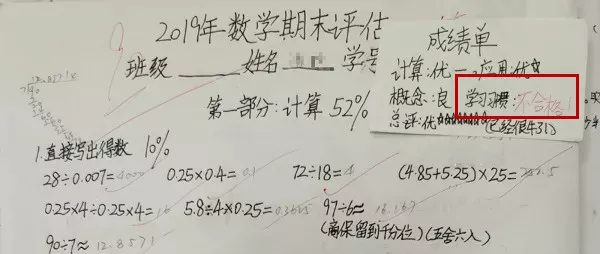 2019年数学期末评估
班级 姓名 学号
成绩单
计算:优一 应用:优☆
概念:良 学习惯:不合格!
总评:优☆☆☆☆☆☆☆(已经很牛了!)
第一部分:计算 52%
1.直接写出得数 10%
28÷0.007=4000 0.25×0.4=0.1 72÷18=4 (4.85+5.25)×25=252.5
0.25×4÷0.25×4=16 5.8÷4×0.25=0.3625 97÷6≈16.167
(商保留到千分位)(五舍六入)
90÷7≈12.8571